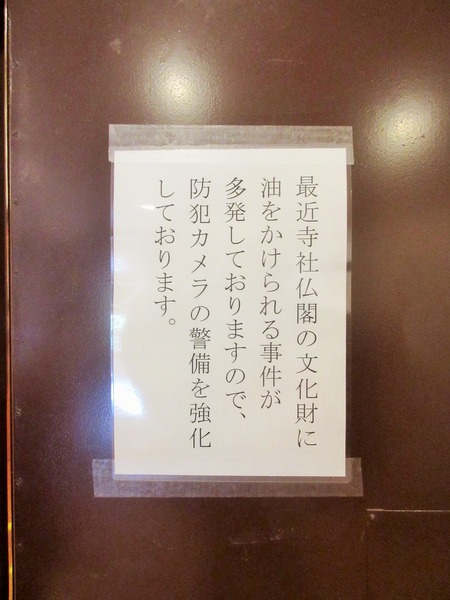 最近寺社仏閣の文化財に
油をかけられる事件が
多発しておりますので、
防犯カメラの警備を強化
しております。